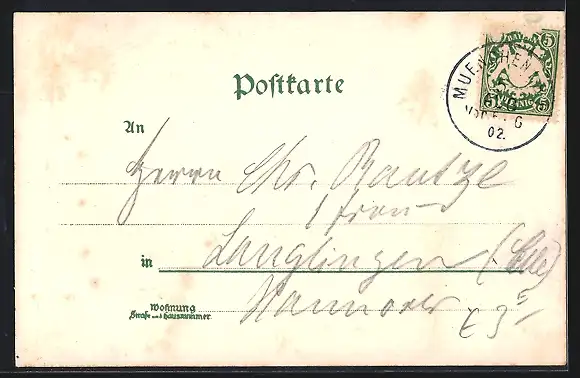 BAYERN
5 5
PFENNIG
MUENCHEN
02.
Postkarte
An
Herrn Chr. Rautze
in Langlingen (Celle)
Hannover
Wohnung
Straße und Hausnummer
£ 3